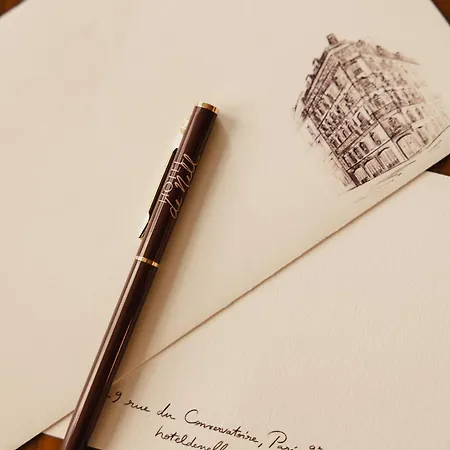 HÔTEL
de Nell
9 rue du Conservatoire, Paris 9
hoteldenell